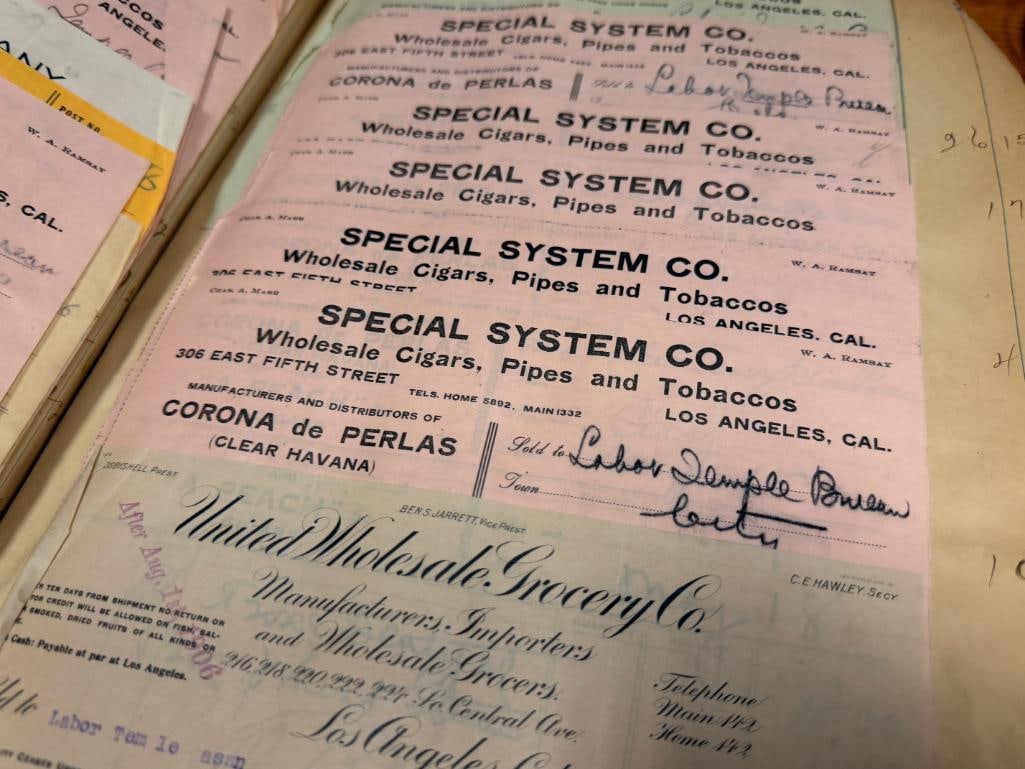 COS
ANGELE
ANY
POST NR.
W. A. RAMSAY
S, CAL.
LOS ANGELES, CAL.
SPECIAL SYSTEM CO.
Wholesale Cigars, Pipes and Tobaccos
306 EAST FIFTH STREET
LOS ANGELES, CAL.
MANUFACTURERS AND DISTRIBUTORS OF
CORONA de PERLAS
Sold to Labor Temple Bureau
CHAS. A. MANN
W. A. RAMSAY
SPECIAL SYSTEM CO.
Wholesale Cigars, Pipes and Tobaccos
W. A. RAMSAY
SPECIAL SYSTEM CO.
Wholesale Cigars, Pipes and Tobaccos
CHAS. A. MANN
W. A. RAMSAY
SPECIAL SYSTEM CO.
Wholesale Cigars, Pipes and Tobaccos
306 EAST FIFTH STREET
LOS ANGELES, CAL.
CHAS. A. MANN
W. A. RAMSAY
SPECIAL SYSTEM CO.
Wholesale Cigars, Pipes and Tobaccos
306 EAST FIFTH STREET
TELS. HOME 5892, MAIN 1332
LOS ANGELES, CAL.
MANUFACTURERS AND DISTRIBUTORS OF
CORONA de PERLAS
(CLEAR HAVANA)
Sold to Labor Temple Bureau
Town City
OSBISHELL, PREST
BEN S. JARRETT, VICE PREST
C. E. HAWLEY, SECY.
United Wholesale Grocery Co.
Manufacturers, Importers
and Wholesale Grocers.
216, 218, 220, 222, 224 So. Central Ave.
Los Angeles
After Aug. 1st 1906
TEN DAYS FROM SHIPMENT NO RETURN OR
FOR CREDIT WILL BE ALLOWED ON FISH, SAL-
SMOKED, DRIED FRUITS OF ALL KINDS OR
Cash: Payable at par at Los Angeles.
Telephone
Main 142
Home 142
to Labor Tem le assn